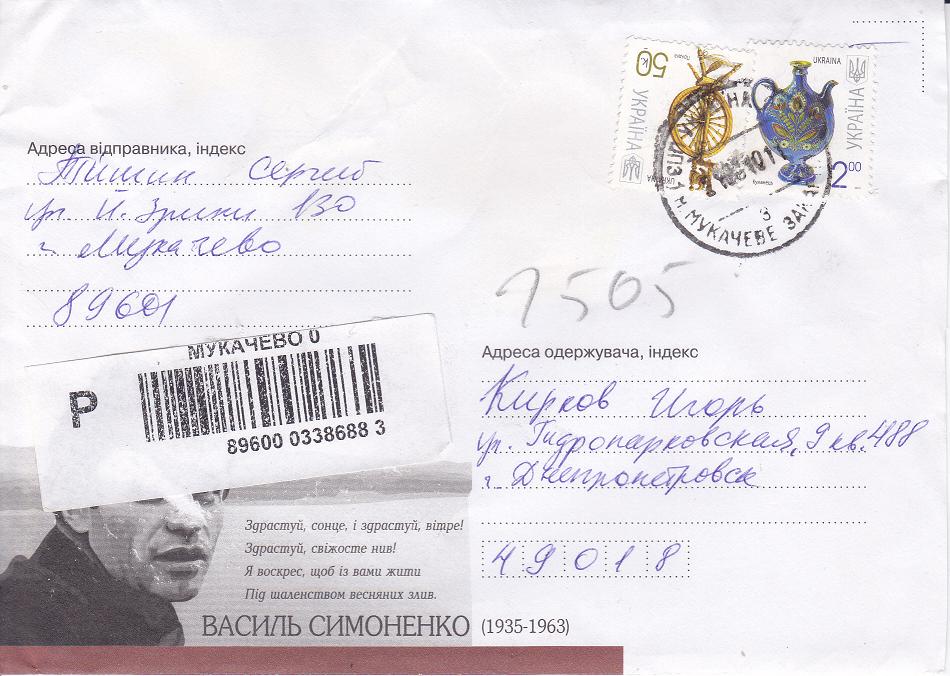 Адреса відправника, індекс
Тишин Сергей
ул Й. Зрини 130
г. Мукачево
89601
50 к.
УКРАЇНА
UKRAINA
УКРАЇНА
2.00
МУКАЧЕВЕ ЗАК
1505
Р
МУКАЧЕВО 0
89600 0338688 3
Адреса одержувача, індекс
Кирков Игорь
ул. Гидропарковская, 9 кв. 488
г. Днепропетровск
49018
Здрастуй, сонце, і здрастуй, вітре!
Здрастуй, свіжосте нив!
Я воскрес, щоб із вами жити
Під шаленством весняних злив.
ВАСИЛЬ СИМОНЕНКО (1935-1963)